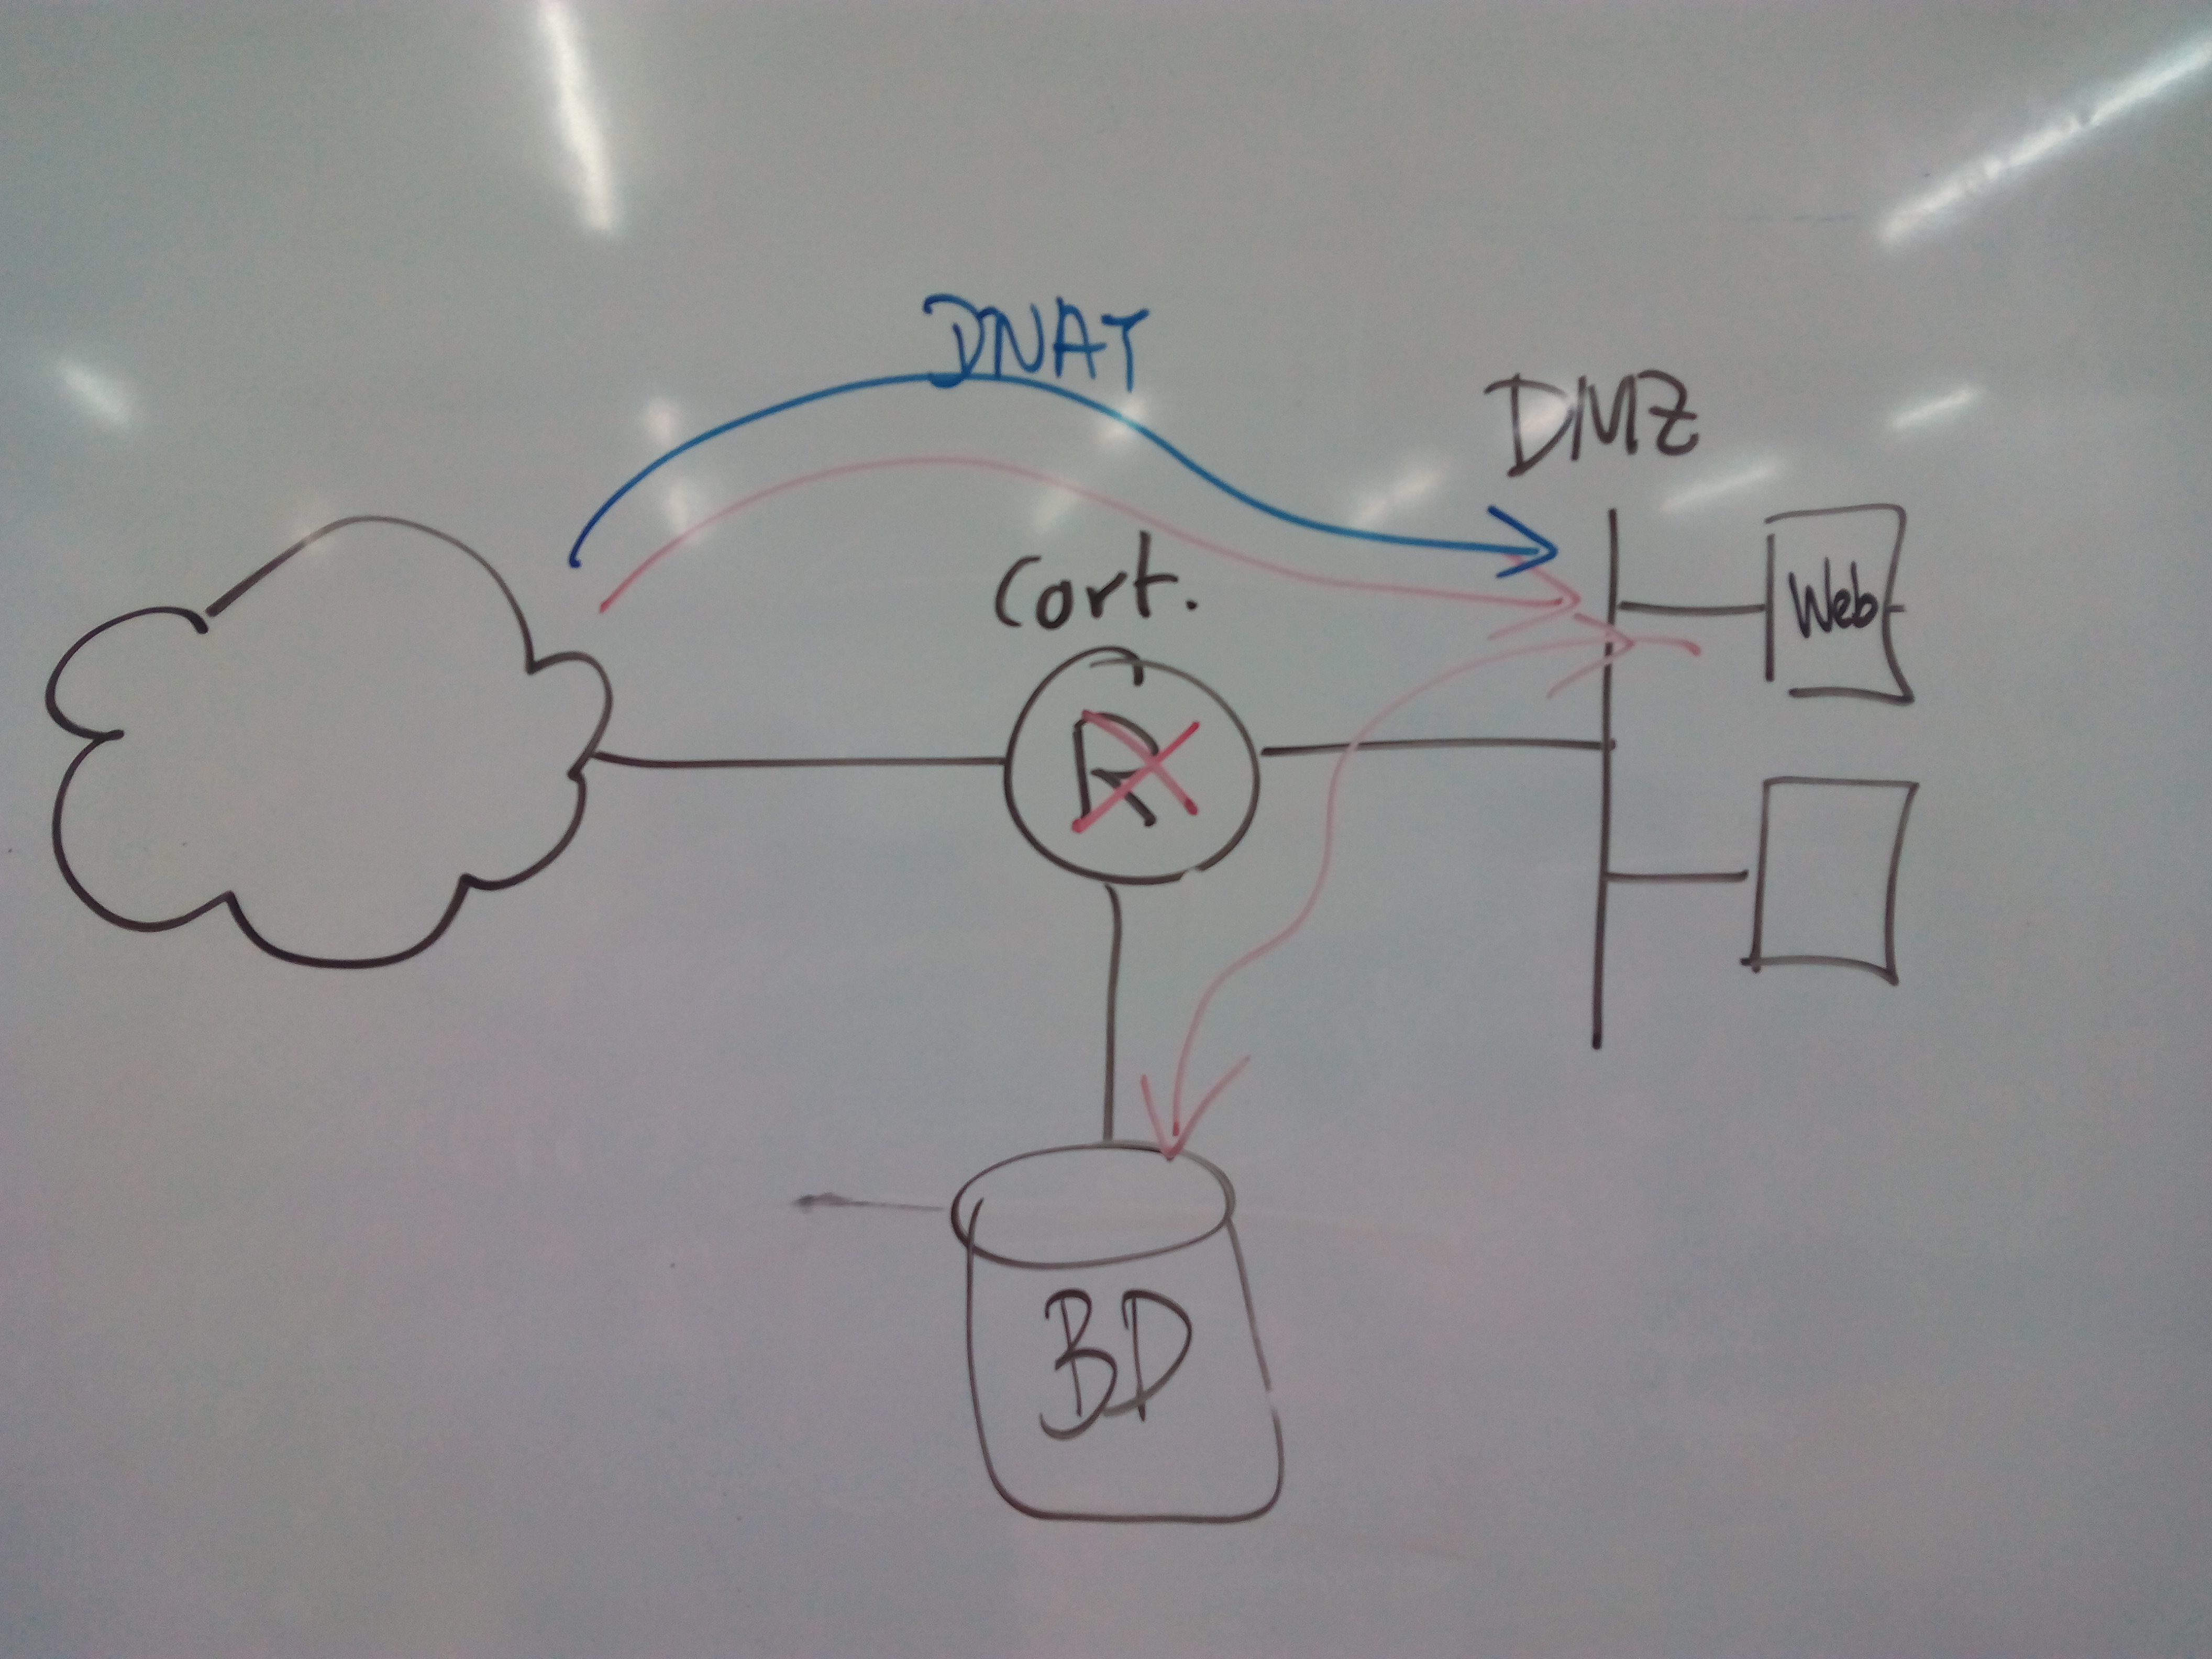 DNAT
DMZ
Cort.
Web
R
BD